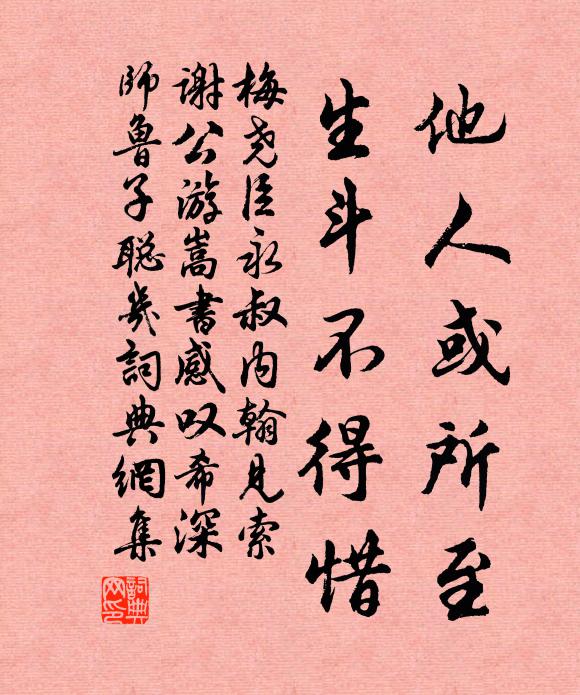 他人或所至
生斗不得惜
梅尧臣永叔内翰见索
谢公游嵩書感叹希深
師魯子聪幾詞典網集
詞典网印